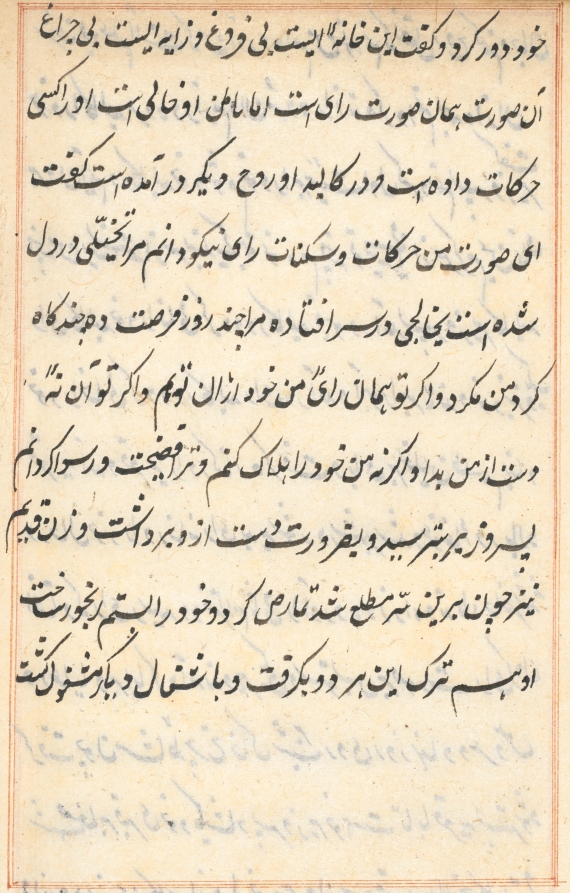 خود دور کرد و گفت این خانهٔ ایست بی فروغ و زاویه ایست بی چراغ
آن صورت همان صورت رای است اما باطن او خالی است او را کسی
حرکات داده است و در کالبد او روح دیگر در آمده است گفت
ای صورت من حرکات و سکنات رای نیکو دانم مرا تخیّلی در دل
شده است خالجی در سر افتاده مرا چند روز فرصت ده چند گاه
گرد من مگرد و اگر تو همان رائ من خود ازان توئم و اگر تو آن نهٔ
دست از من بدار و اگر نه من خود را هلاک کنم و ترا فضیحت و رسوا گردانم
پسر وزیر بترسید و بضرورت دست ازو برداشت و زن قدیم
نیز چون برین سّر مطلع شد تمارض کرد و خود را بستم رنجور ساخت
او هم ترک این هر دو بگرفت و باشتغال دیگر مشغول گشت